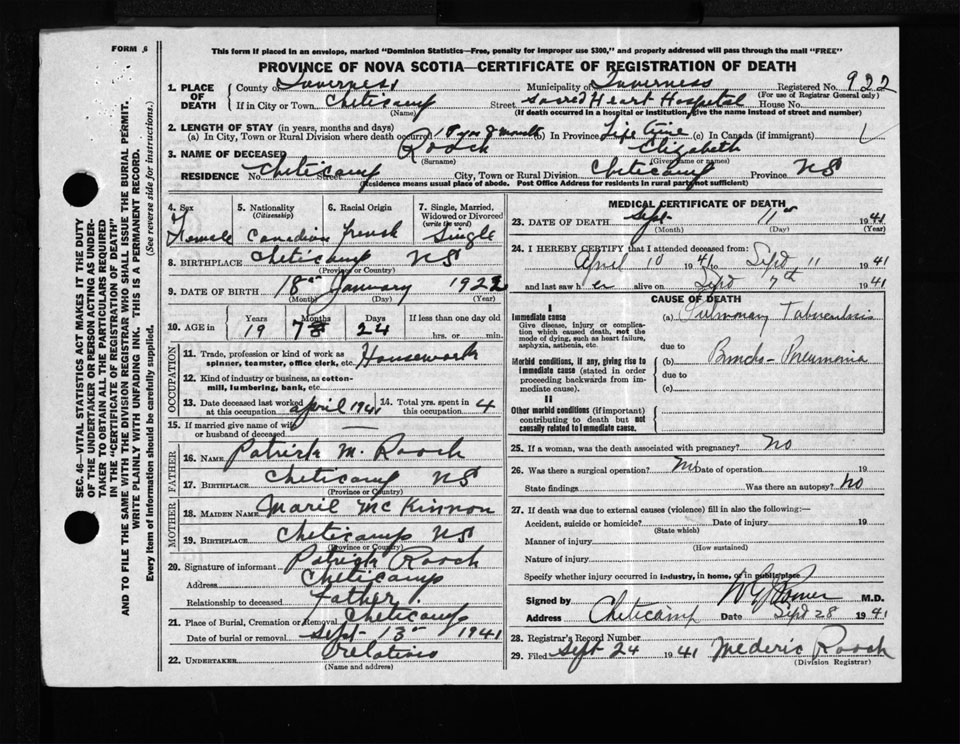 FORM 6
This form if placed in an envelope, marked "Dominion Statistics—Free, penalty for improper use $300," and properly addressed will pass through the mail "FREE"
PROVINCE OF NOVA SCOTIA—CERTIFICATE OF REGISTRATION OF DEATH
1. PLACE OF DEATH { County of Inverness Municipality of Inverness Registered No. 922
(For use of Registrar General only)
If in City or Town, Cheticamp Street Sacred Heart Hospital House No.
(Name) (If death occurred in a hospital or institution, give the name instead of street and number)
2. LENGTH OF STAY (in years, months and days)
(a) In City, Town or Rural Division where death occurred 18 yrs 8 months (b) In Province Life Time (c) In Canada (if immigrant)
3. NAME OF DECEASED Roach Elizabeth
(Surname) (Given name or names)
RESIDENCE No. Cheticamp Street City, Town or Rural Division Cheticamp Province NS
(Residence means usual place of abode. Post Office Address for residents in rural parts not sufficient)
4. Sex Female
5. Nationality (Citizenship) Canadian
6. Racial Origin French
7. Single, Married, Widowed or Divorced (write the word) Single
8. BIRTHPLACE Cheticamp NS
(Province or Country)
9. DATE OF BIRTH 18 January 1922
(Month) (Day) (Year)
10. AGE in { Years Months Days If less than one day old
19 7 24 hrs. or min.
OCCUPATION
11. Trade, profession or kind of work as spinner, teamster, office clerk, etc. Housework
12. Kind of industry or business, as cotton-mill, lumbering, bank, etc.
13. Date deceased last worked at this occupation April 1941
14. Total yrs. spent in this occupation 4
15. If married give name of wife or husband of deceased —
FATHER
16. NAME Patrick M. Roach
17. BIRTHPLACE Cheticamp NS
(Province or Country)
MOTHER
18. MAIDEN NAME Marie McKinnon
19. BIRTHPLACE Cheticamp NS
(Province or Country)
20. Signature of informant Patrick Roach
Address Cheticamp
Relationship to deceased Father
21. Place of Burial, Cremation or Removal Cheticamp
Date of burial or removal Sept 13 1941
22. UNDERTAKER relatives
(Name and address)
MEDICAL CERTIFICATE OF DEATH
23. DATE OF DEATH Sept 11 1941
(Month) (Day) (Year)
24. I HEREBY CERTIFY that I attended deceased from:
April 10 1941 to Sept 11 1941
and last saw her alive on Sept 7th 1941
CAUSE OF DEATH
I
Immediate cause
Give disease, injury or complication which caused death, not the mode of dying, such as heart failure, asphyxia, asthenia, etc.
(a) Pulmonary Tuberculosis
due to
Morbid conditions, if any, giving rise to immediate cause (stated in order proceeding backwards from immediate cause).
(b) Broncho-Pneumonia
due to
(c)
II
Other morbid conditions (if important) contributing to death but not causally related to immediate cause.
25. If a woman, was the death associated with pregnancy? No
26. Was there a surgical operation? No Date of operation 19
State findings Was there an autopsy? No
27. If death was due to external causes (violence) fill in also the following:—
Accident, suicide or homicide? Date of injury 19
(State which)
Manner of injury
(How sustained)
Nature of injury
Specify whether injury occurred in industry, in home, or in public place
Signed by M.D.
Address Cheticamp Date Sept 28 1941
28. Registrar's Record Number
29. Filed Sept 24 1941 Mederic Roach
(Division Registrar)
SEC. 46—VITAL STATISTICS ACT MAKES IT THE DUTY
OF THE UNDERTAKER OR PERSON ACTING AS UNDER-
TAKER TO OBTAIN ALL THE PARTICULARS REQUIRED
IN THE "CERTIFICATE OF REGISTRATION OF DEATH"
AND TO FILE THE SAME WITH THE DIVISION REGISTRAR WHO SHALL ISSUE THE BURIAL PERMIT.
WRITE PLAINLY WITH UNFADING INK. THIS IS A PERMANENT RECORD.
Every item of information should be carefully supplied. (See reverse side for instructions.)